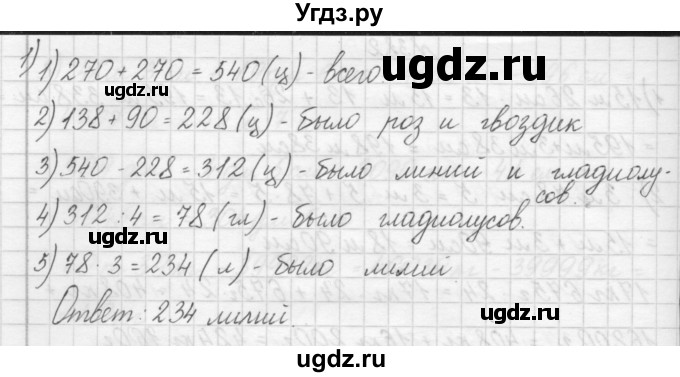 Угдз.ру
1) 1) 270 + 270 = 540 (ц) - всего
ugdz.ru
ugdz.ru
2) 138 + 90 = 228 (ц) - было роз и гвоздик
3) 540 - 228 = 312 (ц) - было линий и гладиолу-
сов.
ugdz.ru
4) 312 : 4 = 78 (гл) - было гладиолусов.
ugdz.ru
5) 78 · 3 = 234 (л) - было лилий
Ответ: 234 лилий.
ugdz.ru
ugdz.ru